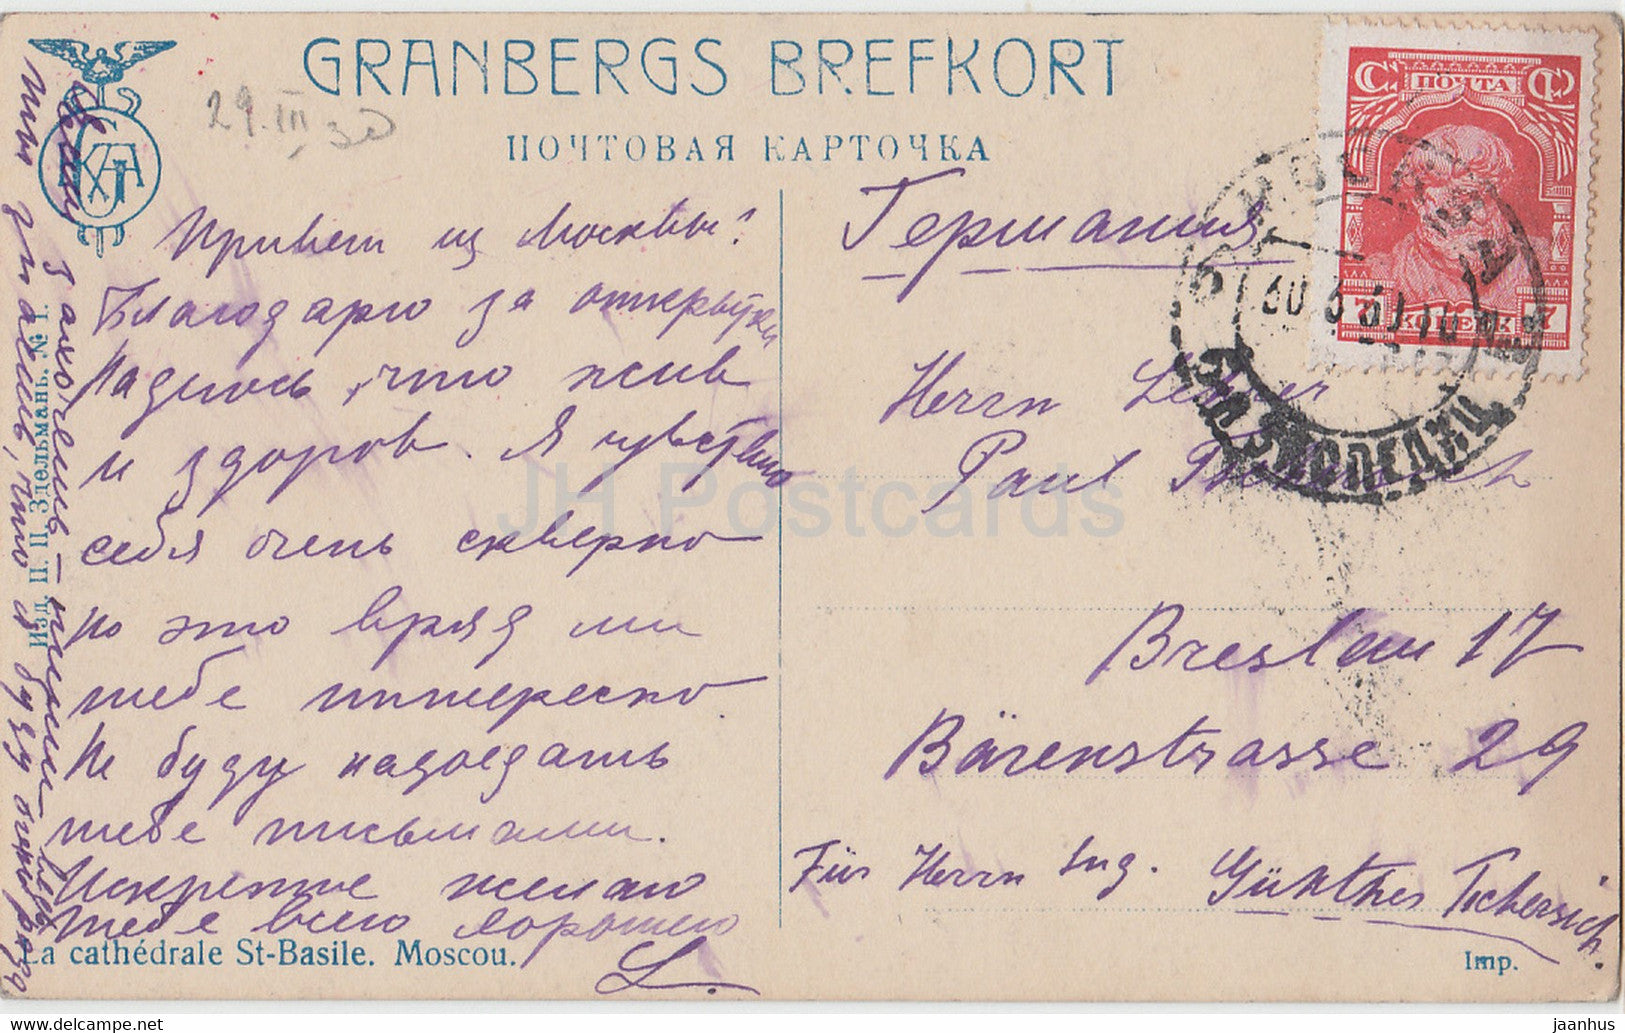 GRANBERGS BREFKORT
ПОЧТОВАЯ КАРТОЧКА
29.III 30
СССР ПОЧТА
7 КОПЕЕК 7
МОСКВА
Привет из Москвы!
Благодарю за открытку
Радуюсь, что жив
и здоров. Я чувствую
себя очень скверно
но это вряд ли
тебе интересно.
Не буду надоедать
тебе письмами.
Искренне желаю
тебе всего хорошего
L.
Если захочешь – пиши
мне знаешь, что я буду очень рада
Изд. П. П. Эдельманъ. № 1.
La cathédrale St-Basile. Moscou.
Германия
Herrn
Paul
Breslau 17
Bärenstrasse 29
Für Herrn Ing. Günther
Imp.
JH Postcards
jaanhus